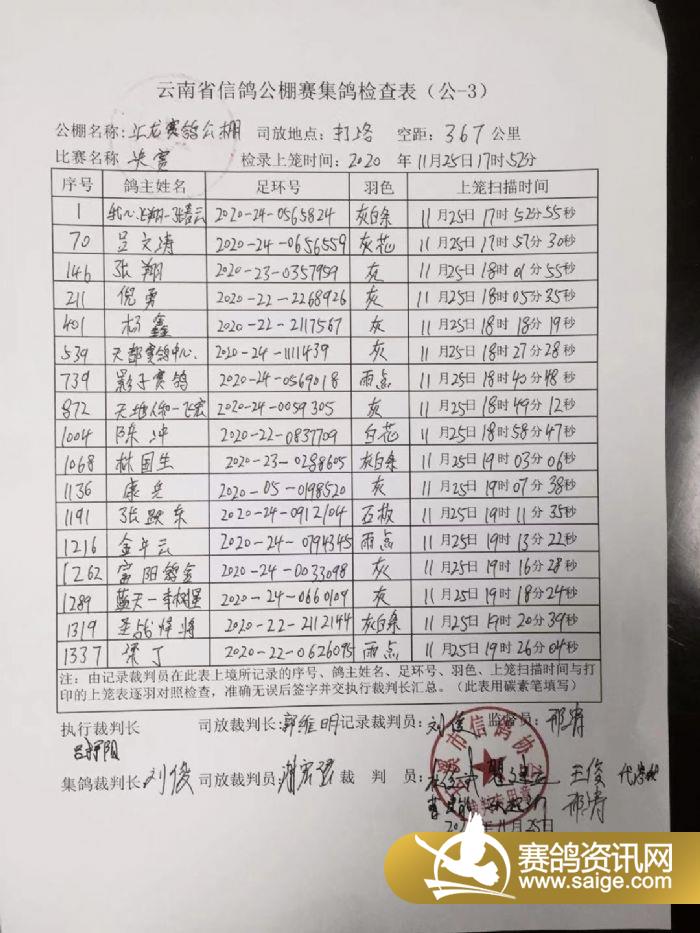 云南省信鸽公棚赛集鸽检查表（公-3）
公棚名称：汇龙赛鸽公棚 司放地点：打洛 空距：367公里
比赛名称 决赛 检录上笼时间：2020年11月25日17时52分
序号 鸽主姓名 足环号 羽色 上笼扫描时间
1 2020-24-0565824 灰白条 11月25日17时52分55秒
70 吴文涛 2020-24-0656559 灰花 11月25日17时57分30秒
146 张翔 2020-23-0357959 灰 11月25日18时01分55秒
211 倪勇 2020-22-2268926 灰 11月25日18时05分35秒
401 杨鑫 2020-22-2117567 灰 11月25日18时18分19秒
539 天都赛鸽中心 2020-24-1111439 灰 11月25日18时27分28秒
739 影子赛鸽 2020-24-0569018 雨点 11月25日18时40分48秒
872 2020-24-0059305 灰 11月25日18时49分12秒
1004 陈冲 2020-22-0837709 白花 11月25日18时58分47秒
1068 林国生 2020-23-0288605 灰白条 11月25日19时03分06秒
1136 康兵 2020-05-0198520 灰 11月25日19时07分38秒
1191 张跃东 2020-24-0912104 石板 11月25日19时11分35秒
1216 金年云 2020-24-0794345 雨点 11月25日19时13分22秒
1262 富阳鸽舍 2020-24-0033098 灰 11月25日19时16分28秒
1289 蓝天-李树星 2020-24-0660109 灰 11月25日19时18分24秒
1319 圣战悍将 2020-22-2112144 灰白条 11月25日19时20分39秒
1337 梁丁 2020-22-0626095 雨点 11月25日19时26分04秒
注：由记录裁判员在此表上填所记录的序号、鸽主姓名、足环号、羽色、上笼扫描时间与打
印的上笼表逐羽对照检查，准确无误后签字并交执行裁判长汇总。（此表用碳素笔填写）
执行裁判长 司放裁判长：郭维明 记录裁判员：刘俊 监督员：邢涛
集鸽裁判长：刘俊 司放裁判员： 裁判员： 王俊
邢涛
市信鸽协会
裁判专用章
11月25日
赛鸽资讯网
www.saige.com